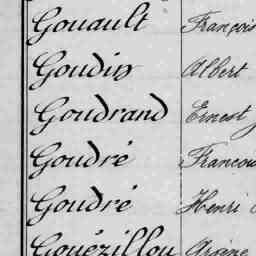 Gouault François
Goudin Albert
Goudrand Ernest J
Goudré François
Goudré Henri
Gouézillou Arsène